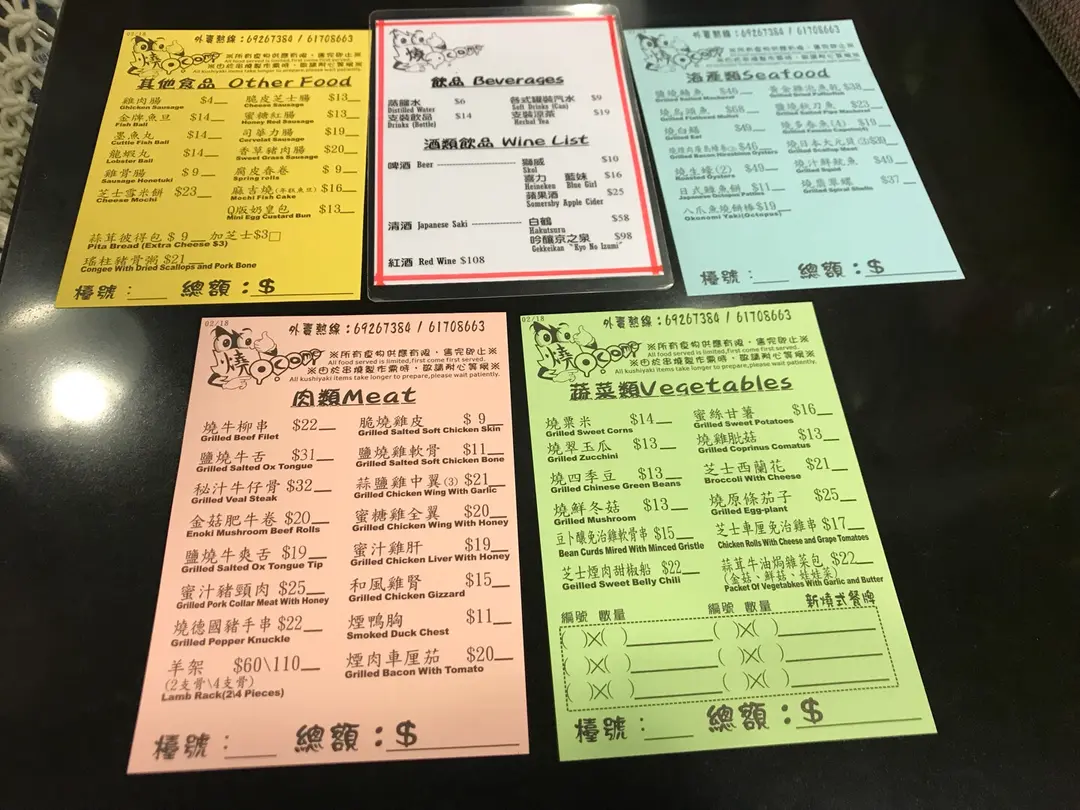 02/18
外賣熱線：69267384 / 61708663
燒
※所有食物供應有限，售完即止※
All food served is limited,first come first served.
※由於串燒製作需時，敬請耐心等候※
All kushiyaki items take longer to prepare,please wait patiently.
其他食品 Other Food
雞肉腸 $4
Chicken Sausage
金牌魚旦 $14
Fish Ball
墨魚丸 $14
Cuttle Fish Ball
龍蝦丸 $14
Lobster Ball
雞骨腸 $ 9
Sausage Honetuki
芝士雪米餅 $23
Cheese Mochi
脆皮芝士腸 $13
Cheese Sausage
蜜糖紅腸 $13
Honey Red Sausage
司華力腸 $19
Cervelat Sausage
香草豬肉腸 $20
Sweet Grass Sausage
腐皮春卷 $ 9
Spring Rolls
麻吉燒 $16
Mochi Fish Cake
Q版奶皇包 $13
Mini Egg Custard Bun
蒜茸彼得包 $ 9 加芝士$3□
Pita Bread (Extra Cheese $3)
瑤柱豬骨粥 $21
Congee With Dried Scallops and Pork Bone
檯號：____ 總額：$
燒
飲品 Beverages
蒸餾水 $6
Distilled Water
支裝飲品 $14
Drinks (Bottle)
各式罐裝汽水 $9
Soft Drinks (Can)
支裝涼茶 $19
Herbal Tea
酒類飲品 Wine List
啤酒 Beer
獅威 $10
Skol
喜力 藍妹 $16
Heineken Blue Girl
蘋果酒 $25
Somersby Apple Cider
清酒 Japanese Saki
白鶴 $58
Hakutsuru
吟釀京之泉 $98
Gekkeikan "Kyo No Izumi"
紅酒 Red Wine $108
外賣熱線：69267384 / 61708663
※所有食物供應有限，售完即止※
All food served is limited,first come first served.
※由於串燒製作需時，敬請耐心等候※
All kushiyaki items take longer to prepare,please wait patiently.
海產類Seafood
鹽燒鯖魚 $46
Grilled Salted Mackerel
$68
燒白鱔 $49
Grilled Eel
$46
Grilled Bacon Hiroshima Oysters
燒生蠔(2) $49
Roasted Oysters
日式雜魚餅 $11
Japanese Fish Cake
八爪魚燒餅棒$19
Okonomi Yaki(Octopus)
$38
鹽燒秋刀魚 $23
多春魚(4) $19
Grilled Female Capelin(4)
燒日本大元貝(3)$39
Grilled Scallop
燒汁鮮魷魚 $49
Grilled Squid
燒翡翠螺 $37
Grilled Spiral Shells
檯號：____ 總額：$
02/18
外賣熱線：69267384 / 61708663
燒
※所有食物供應有限，售完即止※
All food served is limited,first come first served.
※由於串燒製作需時，敬請耐心等候※
All kushiyaki items take longer to prepare,please wait patiently.
肉類Meat
燒牛柳串 $22
Grilled Beef Filet
鹽燒牛舌 $31
Grilled Salted Ox Tongue
秘汁牛仔骨 $32
Grilled Veal Steak
金菇肥牛卷 $20
Enoki Mushroom Beef Rolls
鹽燒牛爽舌 $19
Grilled Salted Ox Tongue Tip
蜜汁豬頸肉 $25
Grilled Pork Collar Meat With Honey
燒德國豬手串 $22
Grilled Pepper Knuckle
羊架 $60\110
(2支骨\4支骨)
Lamb Rack(2\4 Pieces)
脆燒雞皮 $ 9
Grilled Salted Soft Chicken Skin
鹽燒雞軟骨 $11
Grilled Salted Soft Chicken Bone
蒜鹽雞中翼(3) $21
Grilled Chicken Wing With Garlic
蜜糖雞全翼 $20
Grilled Chicken Wing With Honey
蜜汁雞肝 $19
Grilled Chicken Liver With Honey
和風雞腎 $15
Grilled Chicken Gizzard
煙鴨胸 $11
Smoked Duck Chest
煙肉車厘茄 $20
Grilled Bacon With Tomato
檯號：____ 總額：$
02/18
外賣熱線：69267384 / 61708663
燒
※所有食物供應有限，售完即止※
All food served is limited,first come first served.
※由於串燒製作需時，敬請耐心等候※
All kushiyaki items take longer to prepare,please wait patiently.
蔬菜類Vegetables
燒粟米 $14
Grilled Sweet Corns
燒翠玉瓜 $13
Grilled Zucchini
燒四季豆 $13
Grilled Chinese Green Beans
燒鮮冬菇 $13
Grilled Mushroom
豆卜釀免治雞軟骨串 $15
Bean Curds Mired With Minced Gristle
芝士煙肉甜椒船 $22
Geilled Sweet Belly Chili
蜜絲甘薯 $16
Grilled Sweet Potatoes
燒雞髀菇 $13
Grilled Coprinus Comatus
芝士西蘭花 $21
Broccoli With Cheese
燒原條茄子 $25
Grilled Egg-plant
芝士車厘免治雞串 $17
Chicken Rolls With Cheese and Grape Tomatoes
蒜茸牛油焗雜菜包 $22
(金菇、鮮菇、娃娃菜)
Packet Of Vegetabkes With Garlic and Butter
編號 數量 編號 數量 新燒式餐牌
( )X( ) ( )X( )
( )X( ) ( )X( )
( )X( ) ( )X( )
檯號：____ 總額：$